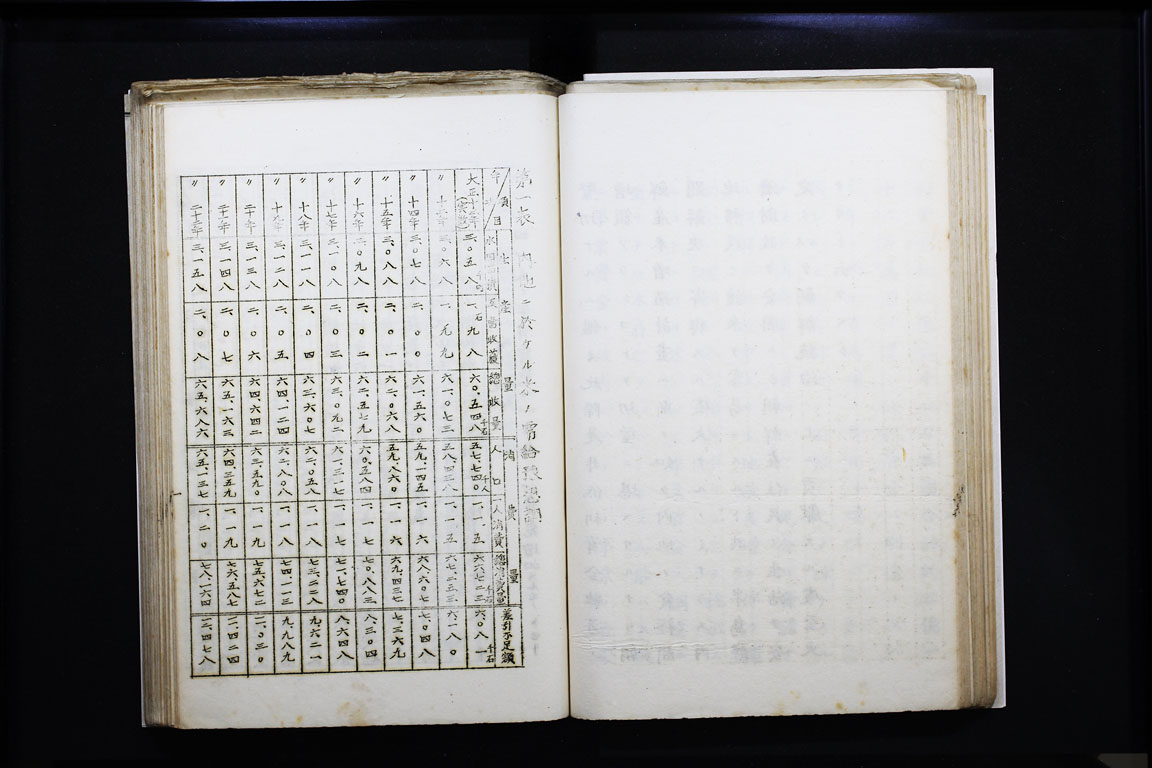 第一表 内地ニ於ケル米ノ需給豫想
年次 項目 生産量 反當收穫 總收量 消費量 人口 一人消費 總消費量 差引不足額
千町 石 千石 千人 千石 千石
大正十二年 三、〇五八 一、九八 六〇、五四八 五七、七四〇 一、一五 六、〇八一
〃 十三年 三、〇六八 一、九九 六一、〇七三 五八、四三八 一、一五 六七、二五三 六、一八〇
〃 十四年 三、〇七八 二、〇〇 六一、五六〇 五九、一四五 一、一六 六八、六〇八 七、〇四八
〃 十五年 三、〇八八 二、〇一 六二、〇六八 五九、八六〇 一、一六 六九、四三七 七、三六九
〃 十六年 三、〇九八 二、〇二 六二、五七九 六〇、五八四 一、一七 七〇、八八三 八、三〇四
〃 十七年 三、一〇八 二、〇三 六三、〇九二 六一、三一七 一、一七 七一、七四〇 八、六四八
〃 十八年 三、一一八 二、〇四 六三、六〇七 六二、〇五八 一、一八 七三、二二八 九、六二一
〃 十九年 三、一二八 二、〇五 六四、一二四 六二、八〇八 一、一八 七四、一一三 九、九八九
〃 二十年 三、一三八 二、〇六 六四、六四二 六三、五九〇 一、一九 七五、六七二 一一、〇三〇
〃 二十一年 三、一四八 二、〇七 六五、一六三 六四、三五九 一、一九 七六、五八七 一一、四二四
〃 二十二年 三、一五八 二、〇八 六五、六八六 六五、一三七 一、二〇 七八、一六四 一二、四七八